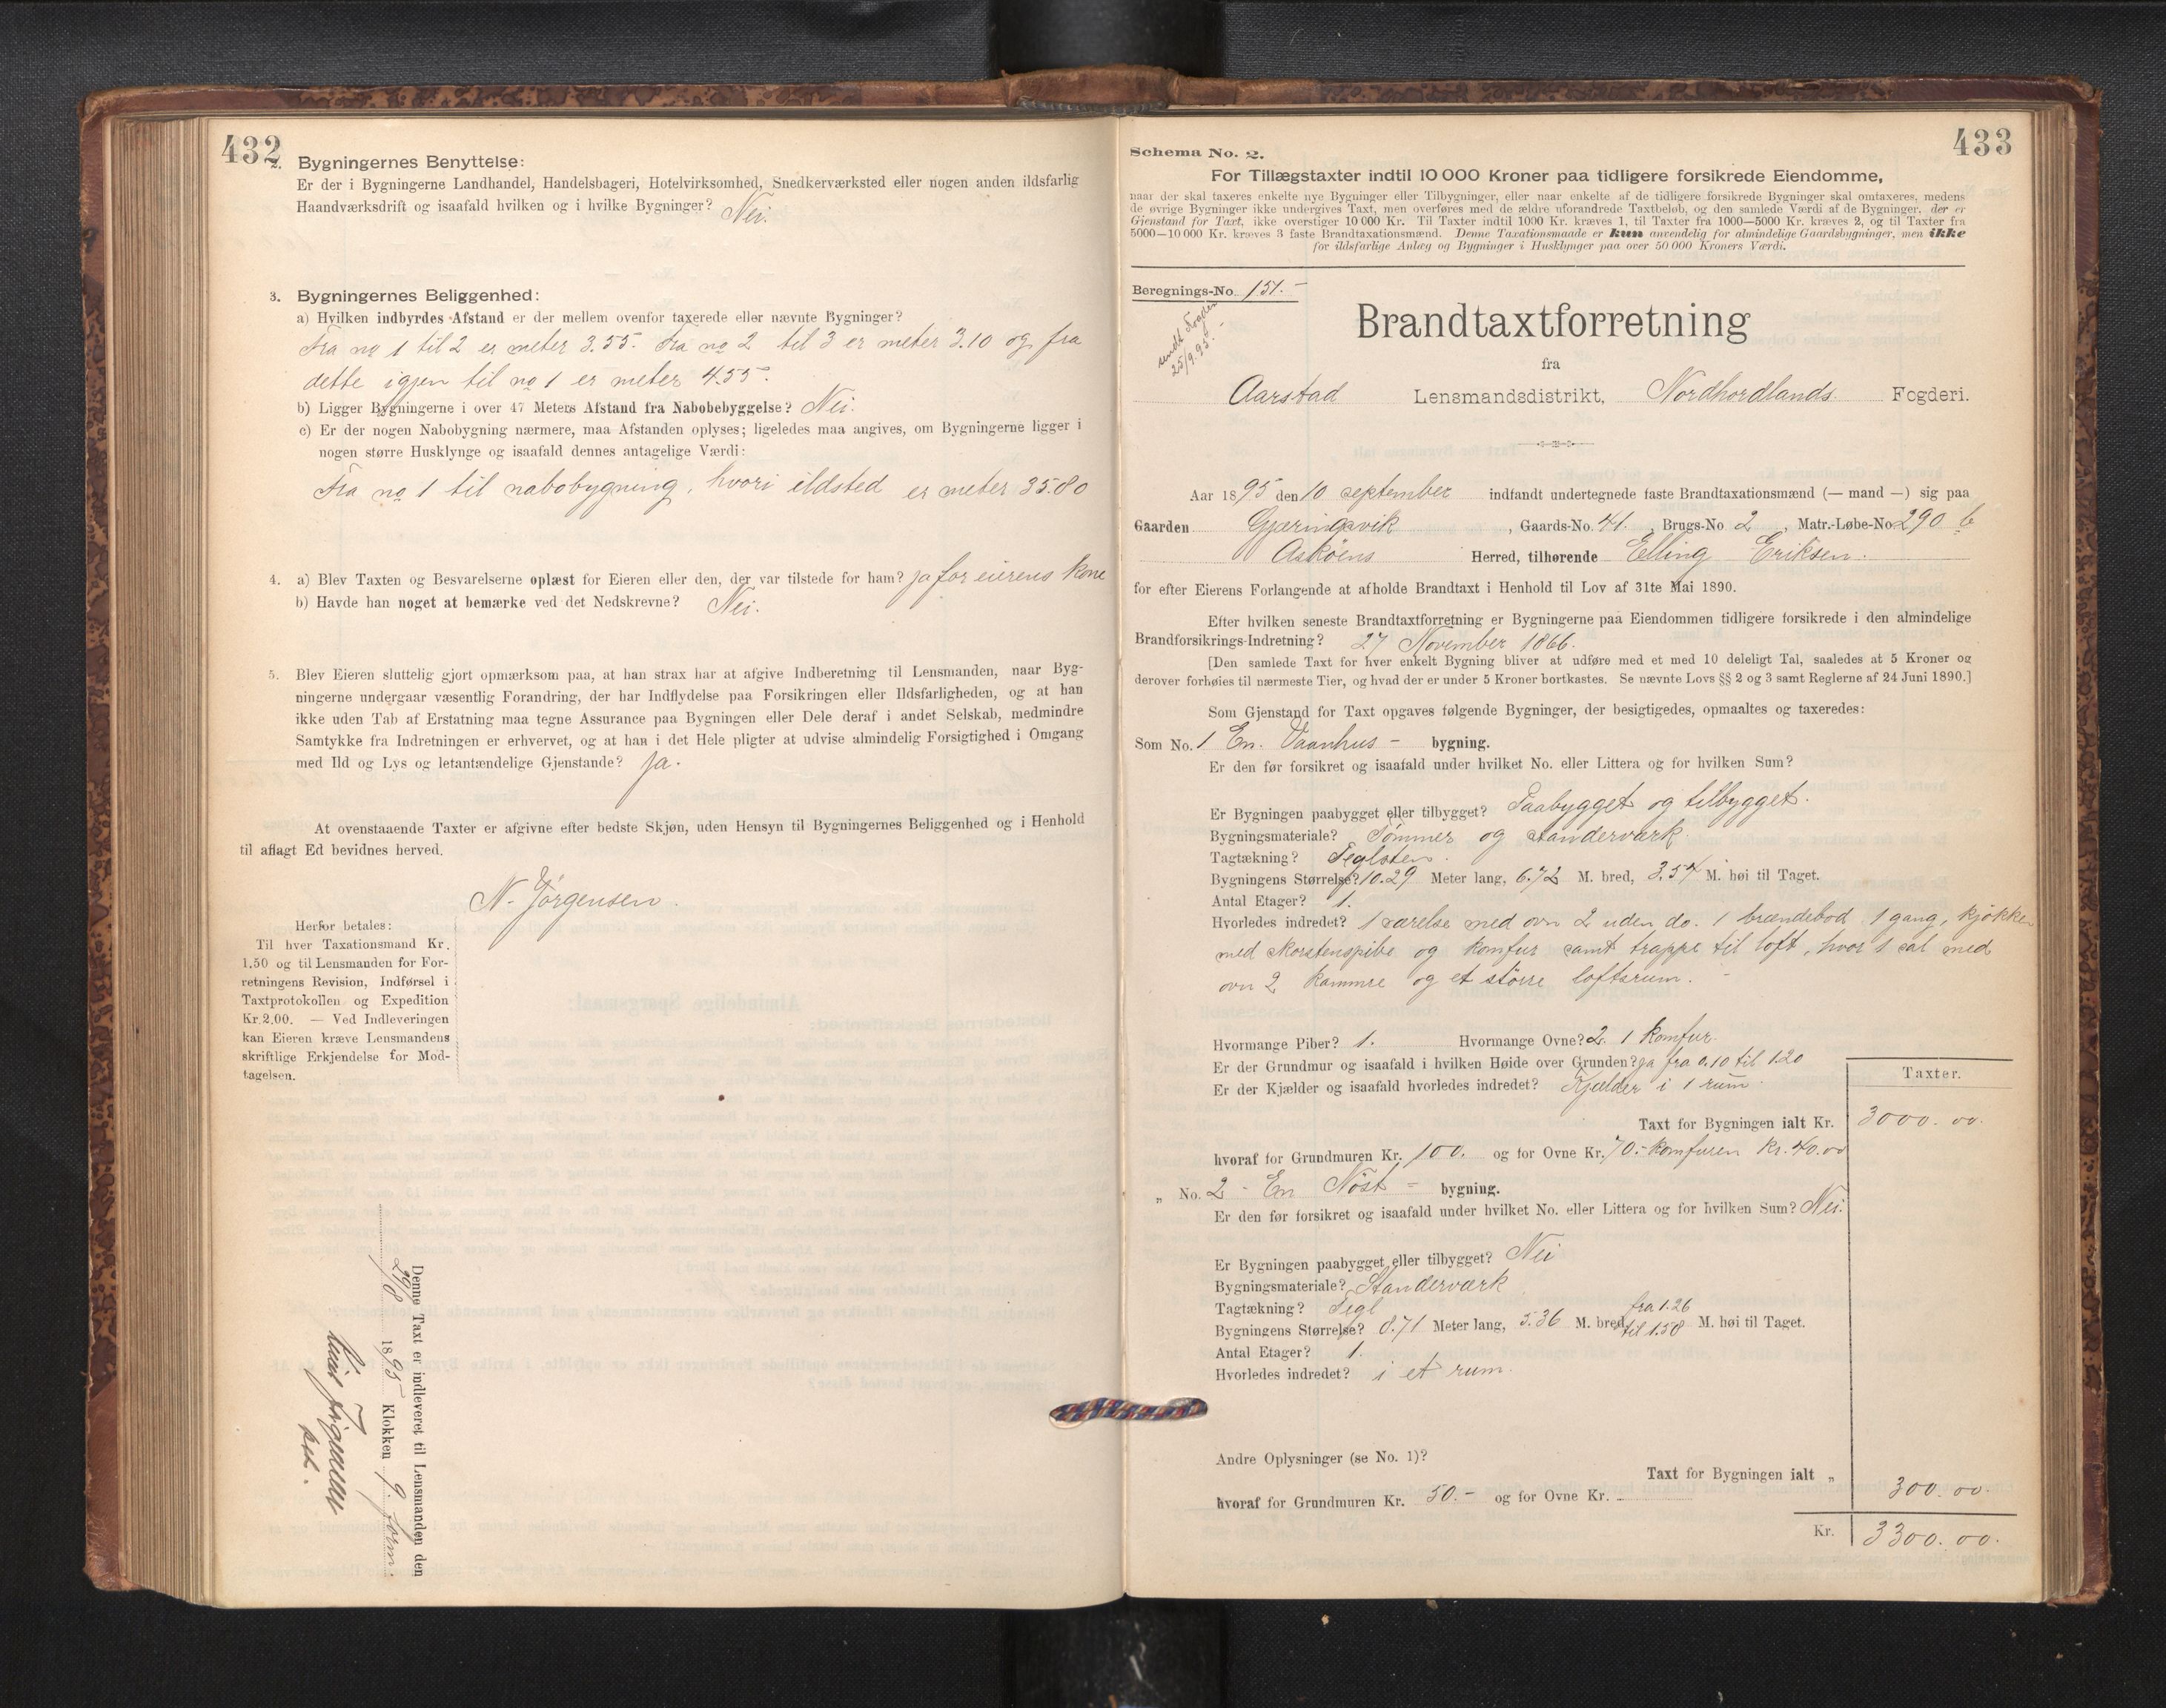 432
2. Bygningernes Benyttelse:
Er der i Bygningerne Landhandel, Handelsbageri, Hotelvirksomhed, Snedkerværksted eller nogen anden ildsfarlig
Haandværksdrift og isaafald hvilken og i hvilke Bygninger? Nei.
3. Bygningernes Beliggenhed:
a) Hvilken indbyrdes Afstand er der mellem ovenfor taxerede eller nævnte Bygninger?
Fra no 1 til 2 er meter 3.55. Fra no 2 til 3 er meter 3.10 og fra
dette igjen til no 1 er meter 4.55.
b) Ligger Bygningerne i over 47 Meters Afstand fra Nabobebyggelse? Nei.
c) Er der nogen Nabobygning nærmere, maa Afstanden oplyses; ligeledes maa angives, om Bygningerne ligger i
nogen større Husklynge og isaafald dennes antagelige Værdi:
Fra no 1 til nabobygning, hvori ildsted er meter 35.80
4. a) Blev Taxten og Besvarelserne oplæst for Eieren eller den, der var tilstede for ham? ja for eierens kone
b) Havde han noget at bemærke ved det Nedskrevne? Nei.
5. Blev Eieren sluttelig gjort opmærksom paa, at han strax har at afgive Indberetning til Lensmanden, naar Byg-
ningerne undergaar væsentlig Forandring, der har Indflydelse paa Forsikringen eller Ildsfarligheden, og at han
ikke uden Tab af Erstatning maa tegne Assurance paa Bygningen eller Dele deraf i andet Selskab, medmindre
Samtykke fra Indretningen er erhvervet, og at han i det Hele pligter at udvise almindelig Forsigtighed i Omgang
med Ild og Lys og letantændelige Gjenstande? Ja.
At ovenstaaende Taxter er afgivne efter bedste Skjøn, uden Hensyn til Bygningernes Beliggenhed og i Henhold
til aflagt Ed bevidnes herved.
N. Jörgensen.
Herfor betales:
Til hver Taxationsmand Kr.
1,50 og til Lensmanden for For-
retningens Revision, Indførsel i
Taxtprotokollen og Expedition
Kr. 2,00. — Ved Indleveringen
kan Eieren kræve Lensmandens
skriftlige Erkjendelse for Mod-
tagelsen.
Denne Taxt er indleveret til Lensmanden den
29/8 1895 Klokken 9. form.
433
Schema No. 2.
For Tillægstaxter indtil 10 000 Kroner paa tidligere forsikrede Eiendomme,
naar der skal taxeres enkelte nye Bygninger eller Tilbygninger, eller naar enkelte af de tidligere forsikrede Bygninger skal omtaxeres, medens
de øvrige Bygninger ikke undergives Taxt, men overføres med de ældre uforandrede Taxtbeløb, og den samlede Værdi af de Bygninger, der er
Gjenstand for Taxt, ikke overstiger 10 000 Kr. Til Taxter indtil 1000 Kr. kræves 1, til Taxter fra 1000—5000 Kr. kræves 2, og til Taxter fra
5000—10 000 Kr. kræves 3 faste Brandtaxationsmænd. Denne Taxationsmaade er kun anvendelig for almindelige Gaardsbygninger, men ikke
for ildsfarlige Anlæg og Bygninger i Husklynger paa over 50 000 Kroners Værdi.
Beregnings-No. 151.-
sendt
25/9.95.-
Brandtaxtforretning
fra
Aarstad Lensmandsdistrikt, Nordhordlands Fogderi.
Aar 1895 den 10 september indfandt undertegnede faste Brandtaxationsmænd (— mand —) sig paa
Gaarden Gjæringsvik, Gaards-No. 41., Brugs-No 2, Matr.-Løbe-No 290 b
Asköens Herred, tilhørende Elling Eriksen.
for efter Eierens Forlangende at afholde Brandtaxt i Henhold til Lov af 31te Mai 1890.
Efter hvilken seneste Brandtaxtforretning er Bygningerne paa Eiendommen tidligere forsikrede i den almindelige
Brandforsikrings-Indretning? 27 November 1866.
[Den samlede Taxt for hver enkelt Bygning bliver at udføre med et med 10 deleligt Tal, saaledes at 5 Kroner og
derover forhøies til nærmeste Tier, og hvad der er under 5 Kroner bortkastes. Se nævnte Lovs §§ 2 og 3 samt Reglerne af 24 Juni 1890.]
Som Gjenstand for Taxt opgaves følgende Bygninger, der besigtigedes, opmaaltes og taxeredes:
Som No. 1 En. Vaanhus - bygning.
Er den før forsikret og isaafald under hvilket No. eller Littera og for hvilken Sum?
Er Bygningen paabygget eller tilbygget? Paabygget og tilbygget.
Bygningsmateriale? Tømmer og standerværk
Tagtækning? Teglsten.
Bygningens Størrelse? 10.29 Meter lang, 6.72 M. bred, 3.54 M. høi til Taget.
Antal Etager? 1.
Hvorledes indredet? 1 værelse med ovn 2 uden do. 1 brændebod 1 gang, kjøkken
med skorstenspibe og komfur samt trappe til loft, hvor 1 sal med
ovn 2 kammre og et större loftsrum.
Hvormange Piber? 1. Hvormange Ovne? 2. 1 komfur.
Er der Grundmur og isaafald i hvilken Høide over Grunden? ja fra 0.10 til 1.20
Er der Kjælder og isaafald hvorledes indredet? Kjælder i 1 rum.
Taxter.
Taxt for Bygningen ialt Kr. 3000.00.
hvoraf for Grundmuren Kr. 100. og for Ovne Kr. 70.- komfuren kr. 40.00
„ No. 2 - En Nöst - bygning.
Er den før forsikret og isaafald under hvilket No. eller Littera og for hvilken Sum? Nei.
Er Bygningen paabygget eller tilbygget? Nei
Bygningsmateriale? Standerværk
Tagtækning? Tegl
Bygningens Størrelse? 8.71 Meter lang, 5.36 M. bred, fra 1.26 til 1.58 M. høi til Taget.
Antal Etager? 1.
Hvorledes indredet? i et rum.
Andre Oplysninger (se No. 1)?
Taxt for Bygningen ialt „ 300.00.
hvoraf for Grundmuren Kr. 50.- og for Ovne Kr.
Kr. 3300.00.